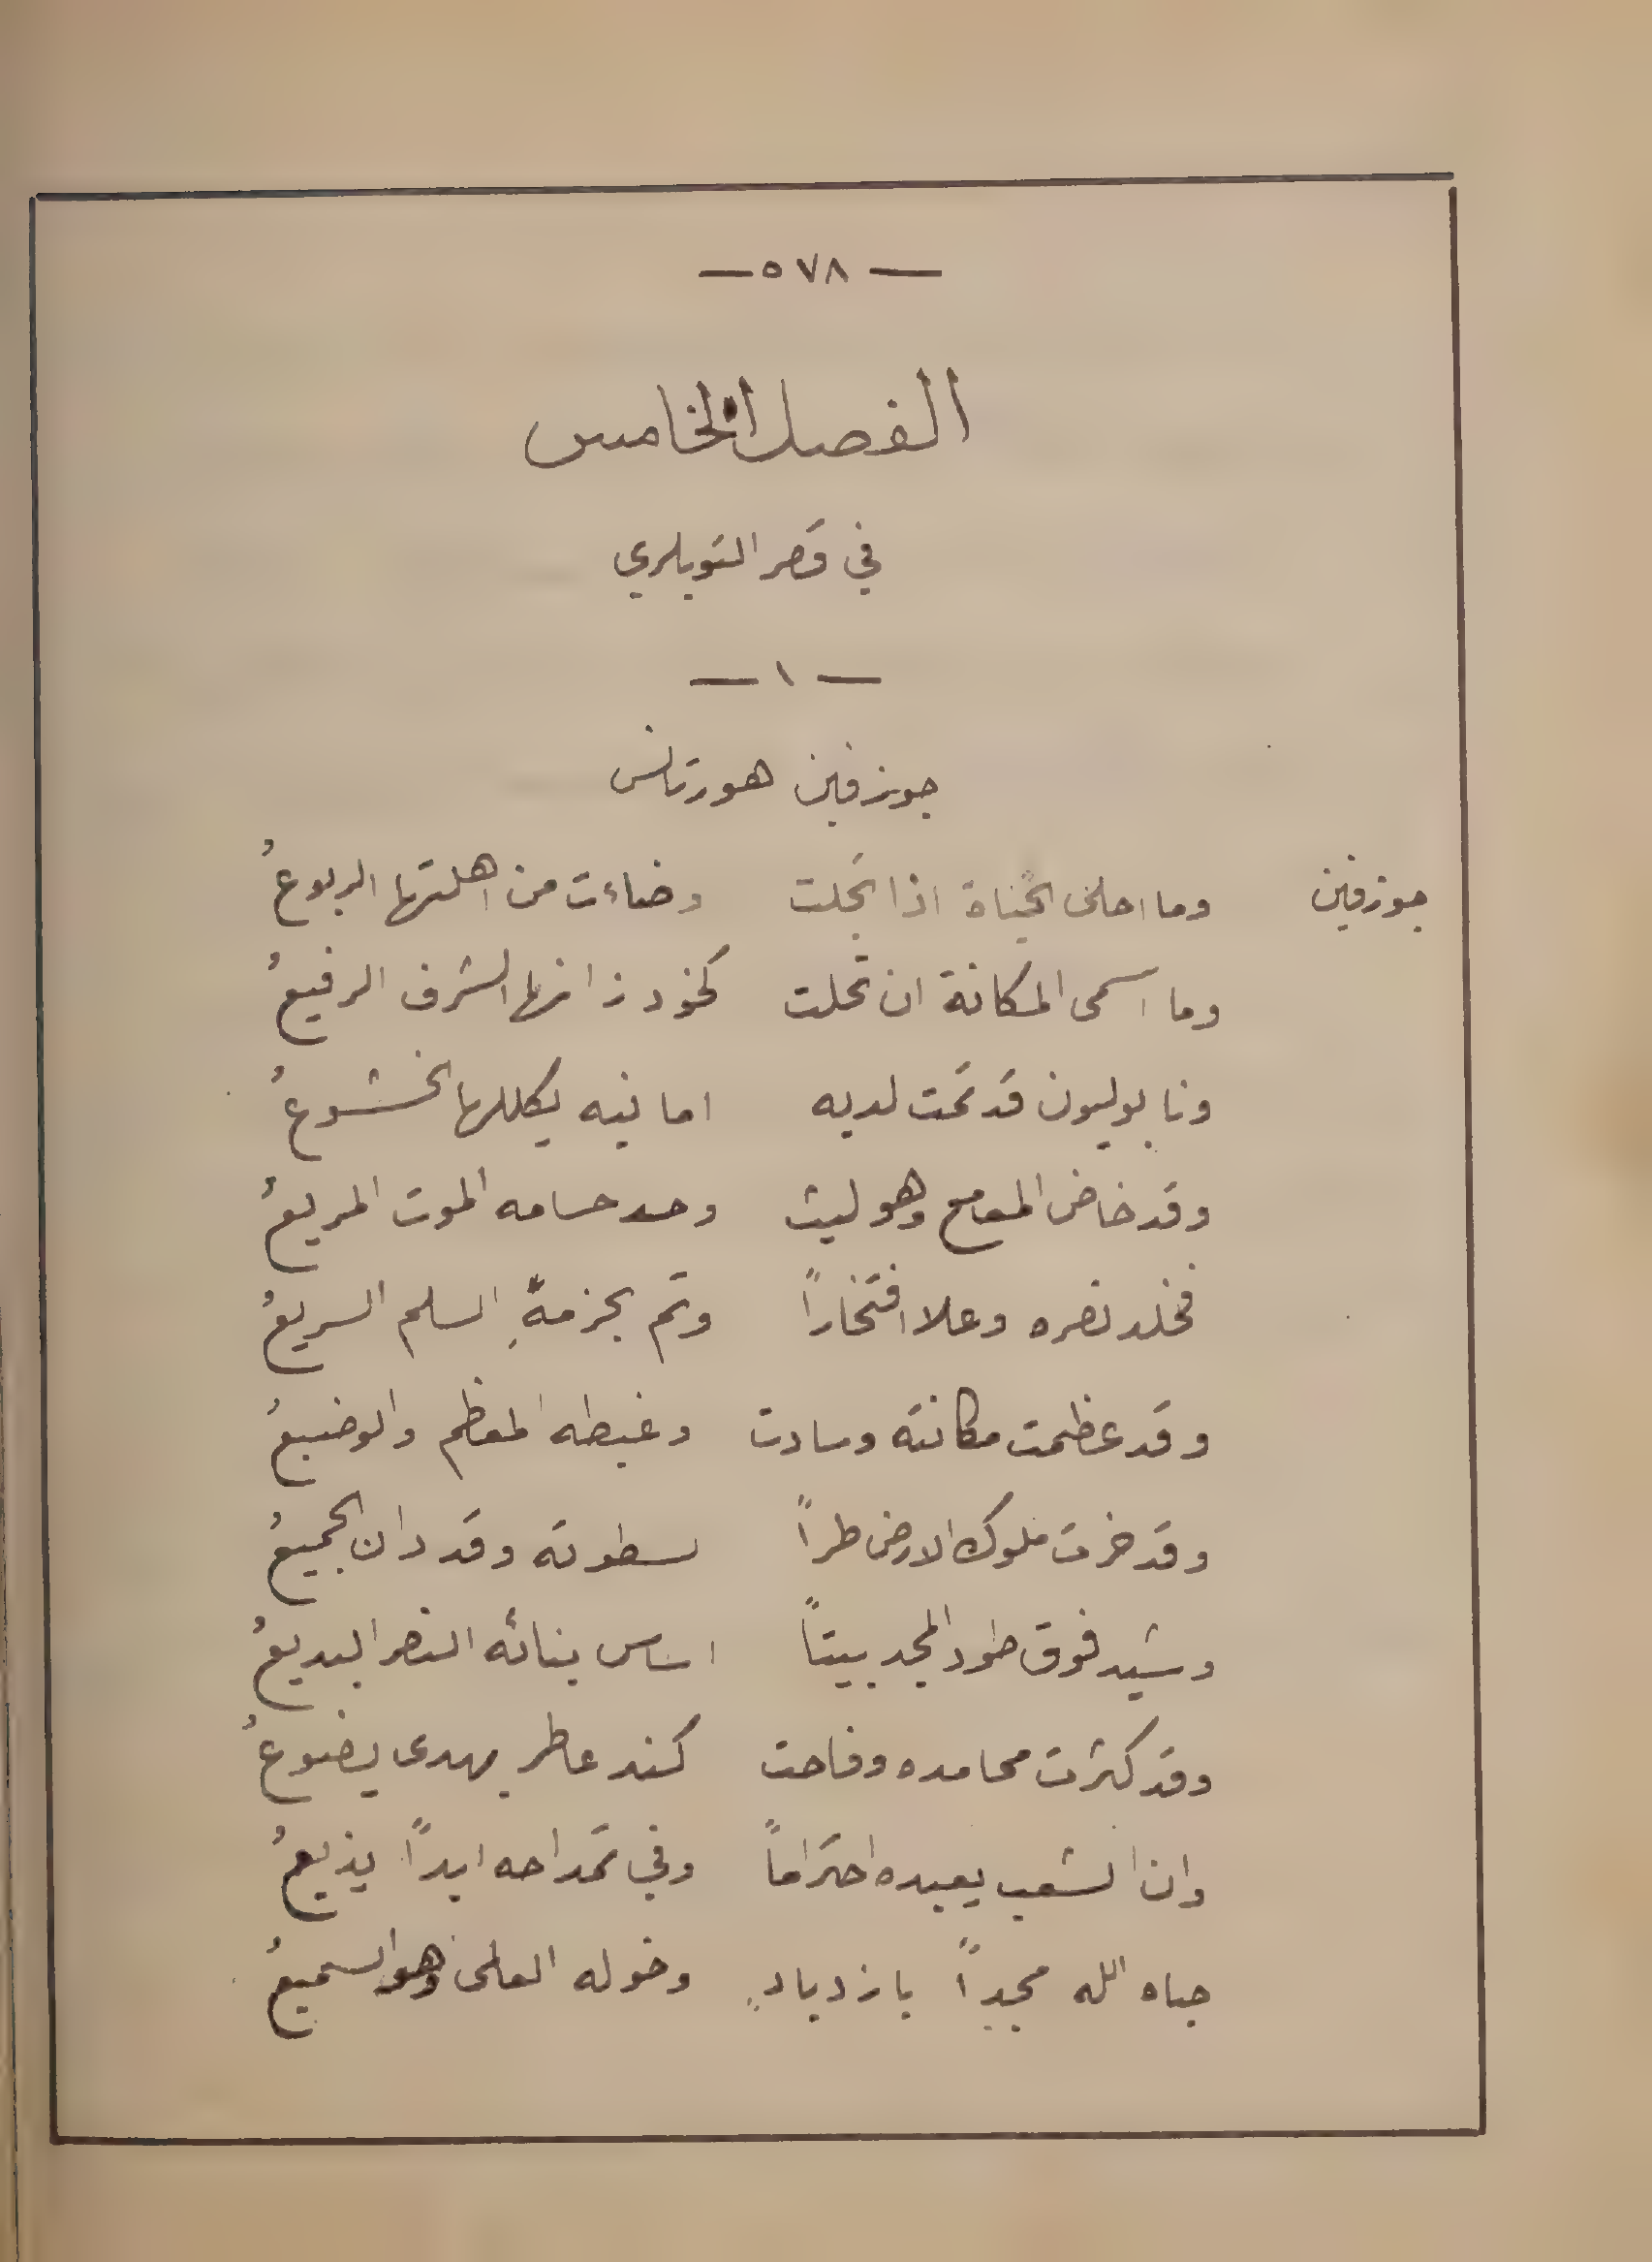 — ٥٧٨ —
الفصل الخامس
في قصر التويلري
— ١ —
جوزفين هورتانس
جوزفين وما احلى الحياة اذا تجلت وضاءت من اهلتها الربوعُ
وما اسمى المكانة ان تحلت كخود زانها الشرف الرفيعُ
ونابوليون قد تمت لديه امانيه يكللها الخشوعُ
وقد خاض المعامع وهو ليث وحد حسامه الموت المريعُ
فخلد نصره وعلا افتخاراً وتم بحزمهِ السلم السريعُ
وقد عظمت مكانته وسادت وغبطه المعظم والوضيعُ
وقد خرت ملوك الارض طراً لسطوته وقد دان الجميعُ
وشيد فوق طود المجد بيتاً اساس بنائه النصر البديعُ
وقد كثرت محامده وفاحت كند عاطر يهدى يضوعُ
وان الشعب يعبده احتراماً وفي تمداحه ابداً يذيعُ
حباه الله مجداً بازديادٍ وخوله العلى وهو السميعُ